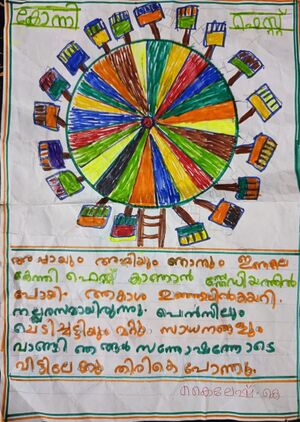 കോന്നി ഫെസ്റ്റ്
അപ്പായും അമ്മിയും ഞാനും ഇന്നലെ
കോന്നി ഫെസ്റ്റ് കാണാൻ സ്റ്റേഡിയത്തിൽ
പോയി. ആകാശ ഊഞ്ഞാലിൽകയറി.
നല്ലരസമായിരുന്നു. പെൻസിലും
ചെടിച്ചട്ടിയും മറ്റു സാധനങ്ങളും
വാങ്ങി ഞങ്ങൾ സന്തോഷത്തോടെ
വീട്ടിലേക്കു തിരികെ പോന്നു.
കൈലേഷ്. കെ